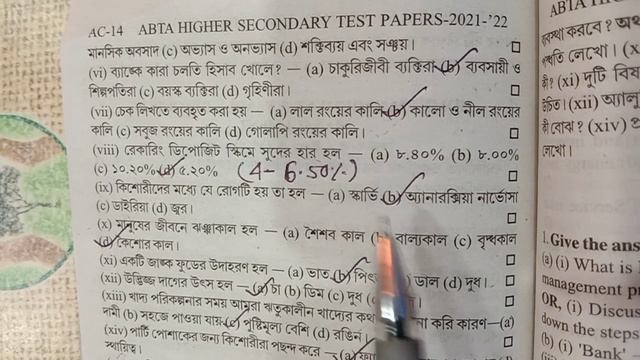 AC-14 ABTA HIGHER SECONDARY TEST PAPERS-2021-'22
মানসিক অবসাদ (c) অভ্যাস ও অনভ্যাস (d) শক্তিব্যয় এবং সঞ্চয়।
(vi) ব্যাঙ্কে কারা চলতি হিসাব খোলে? — (a) চাকুরিজীবী ব্যক্তিরা (b) ব্যবসায়ী ও
শিল্পপতিরা (c) বয়স্ক ব্যক্তিরা (d) গৃহিণীরা।
(vii) চেক লিখতে ব্যবহৃত করা হয় — (a) লাল রংয়ের কালি (b) কালো ও নীল রংয়ের
কালি (c) সবুজ রংয়ের কালি (d) গোলাপি রংয়ের কালি।
(viii) রেকারিং ডিপোজিট স্কিমে সুদের হার হল — (a) ৮.৪০% (b) ৮.০০%
(c) ১০.২০% (d) ৫.২০% (4- 6.50%)
(ix) কিশোরীদের মধ্যে যে রোগটি হয় তা হল — (a) স্কার্ভি (b) অ্যানারক্সিয়া নার্ভোসা
(c) ডাইরিয়া (d) জ্বর।
(x) মানুষের জীবনে ঝঞ্ঝাকাল হল — (a) শৈশব কাল (b) বাল্যকাল (c) বৃদ্ধকাল
(d) কৈশোর কাল।
(xi) একটি জাঙ্ক ফুডের উদাহরণ হল — (a) ভাত (b) ডাল (d) দুধ।
(xii) উদ্ভিজ্জ দাগের উৎস হল — (a) চা (b) ডিম (c) দুধ
(xiii) খাদ্য পরিকল্পনার সময় আমরা ঋতুকালীন খাদ্যের কথা না করি কারণ—(a)
দামী (b) সহজে পাওয়া যায় (c) পুষ্টিমূল্য বেশি (d) রঙিন।
(xiv) পার্টি পোশাকের জন্য কিশোরীরা পছন্দ করে — (a)
স্থায়িত্ব।
ABTA
ব্যবস্থা করবে?
লেখো।
কী? (xi) দুটি
উচিত। (xii)
কী বোঝ? (xiv)
লেখো।
1. Give the ans
(a) (i) What is
management pr
OR, (i) Discus
down the steps
(b) (i) 'Bank